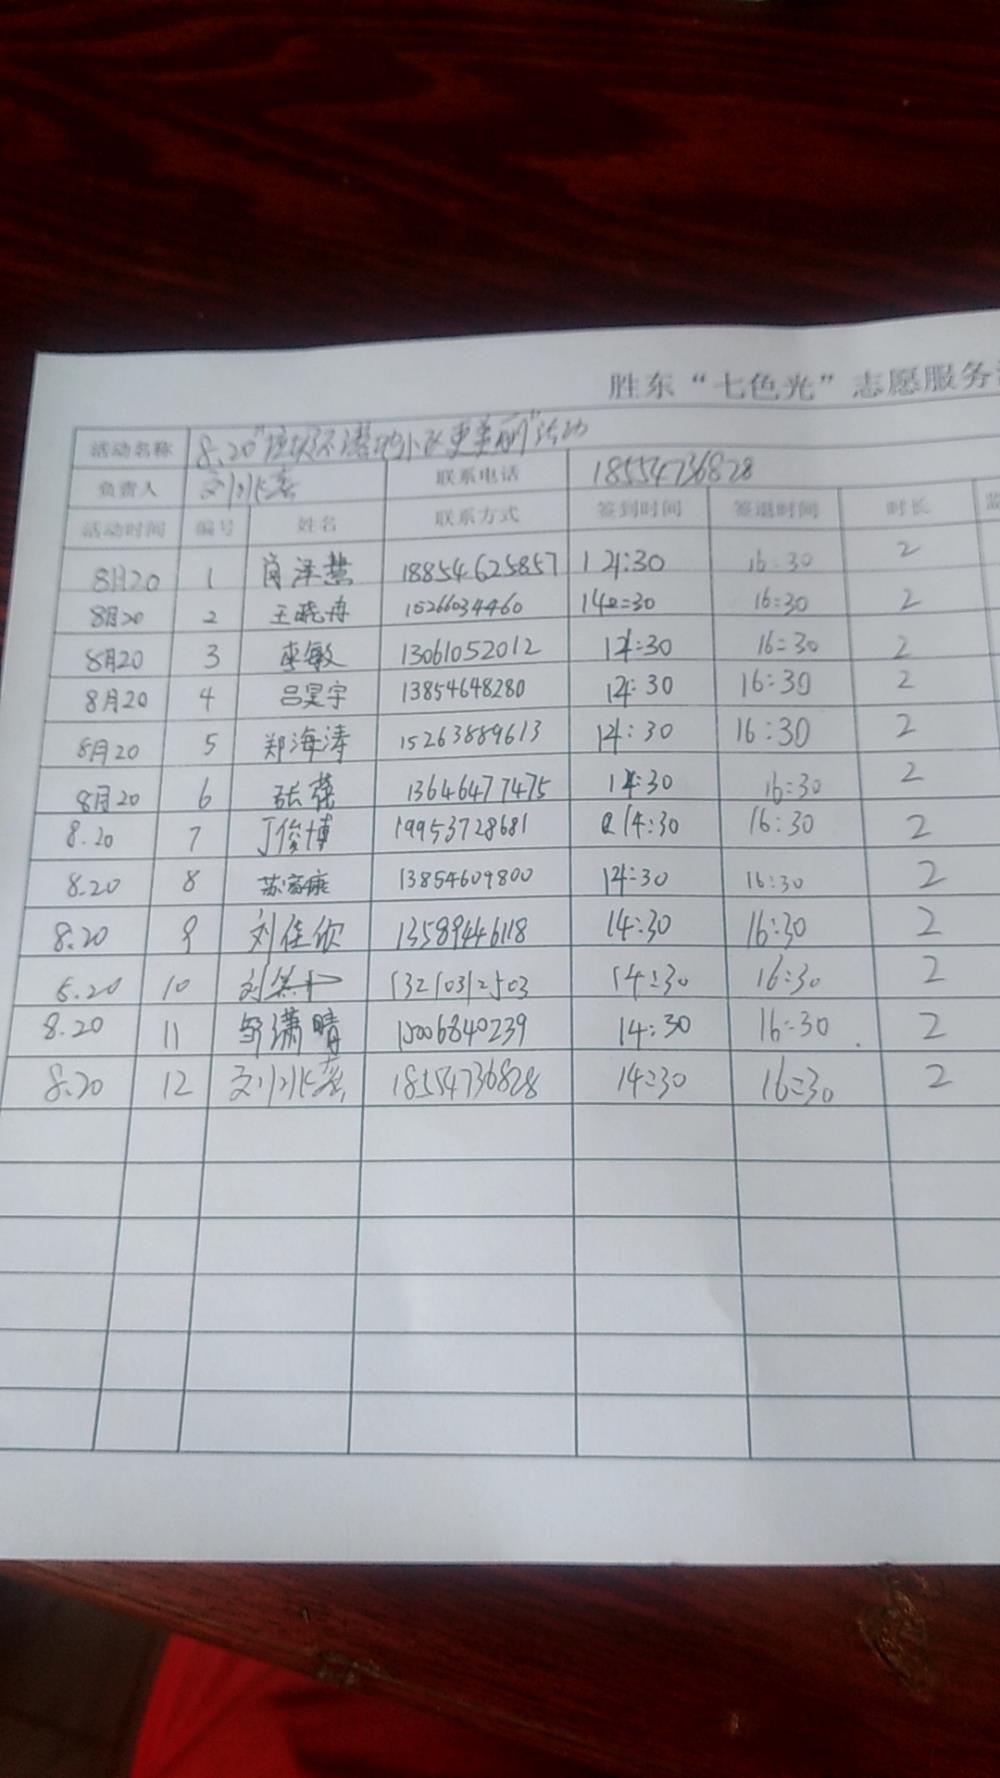 胜东“七色光”志愿服务
活动名称 8.20"垃圾不落地小区更美丽"活动
负责人 联系电话 18554736828
活动时间 编号 姓名 联系方式 签到时间 签退时间 时长
8月20 1 肖泽慧 18854625857 14:30 16:30 2
8月20 2 王晓冉 15266034460 14:30 16:30 2
8月20 3 李敏 13061052012 14:30 16:30 2
8月20 4 吕昊宇 13854648280 14:30 16:30 2
8月20 5 郑海涛 15263889613 14:30 16:30 2
8月20 6 张蕊 13646477475 14:30 16:30 2
8.20 7 丁俊博 19953728681 14:30 16:30 2
8.20 8 苏富康 13854609800 14:30 16:30 2
8.20 9 刘佳欣 13589446118 14:30 16:30 2
8.20 10 刘 13210312503 14:30 16:30 2
8.20 11 邹潇晴 15006840239 14:30 16:30 2
8.20 12 18554736828 14:30 16:30 2